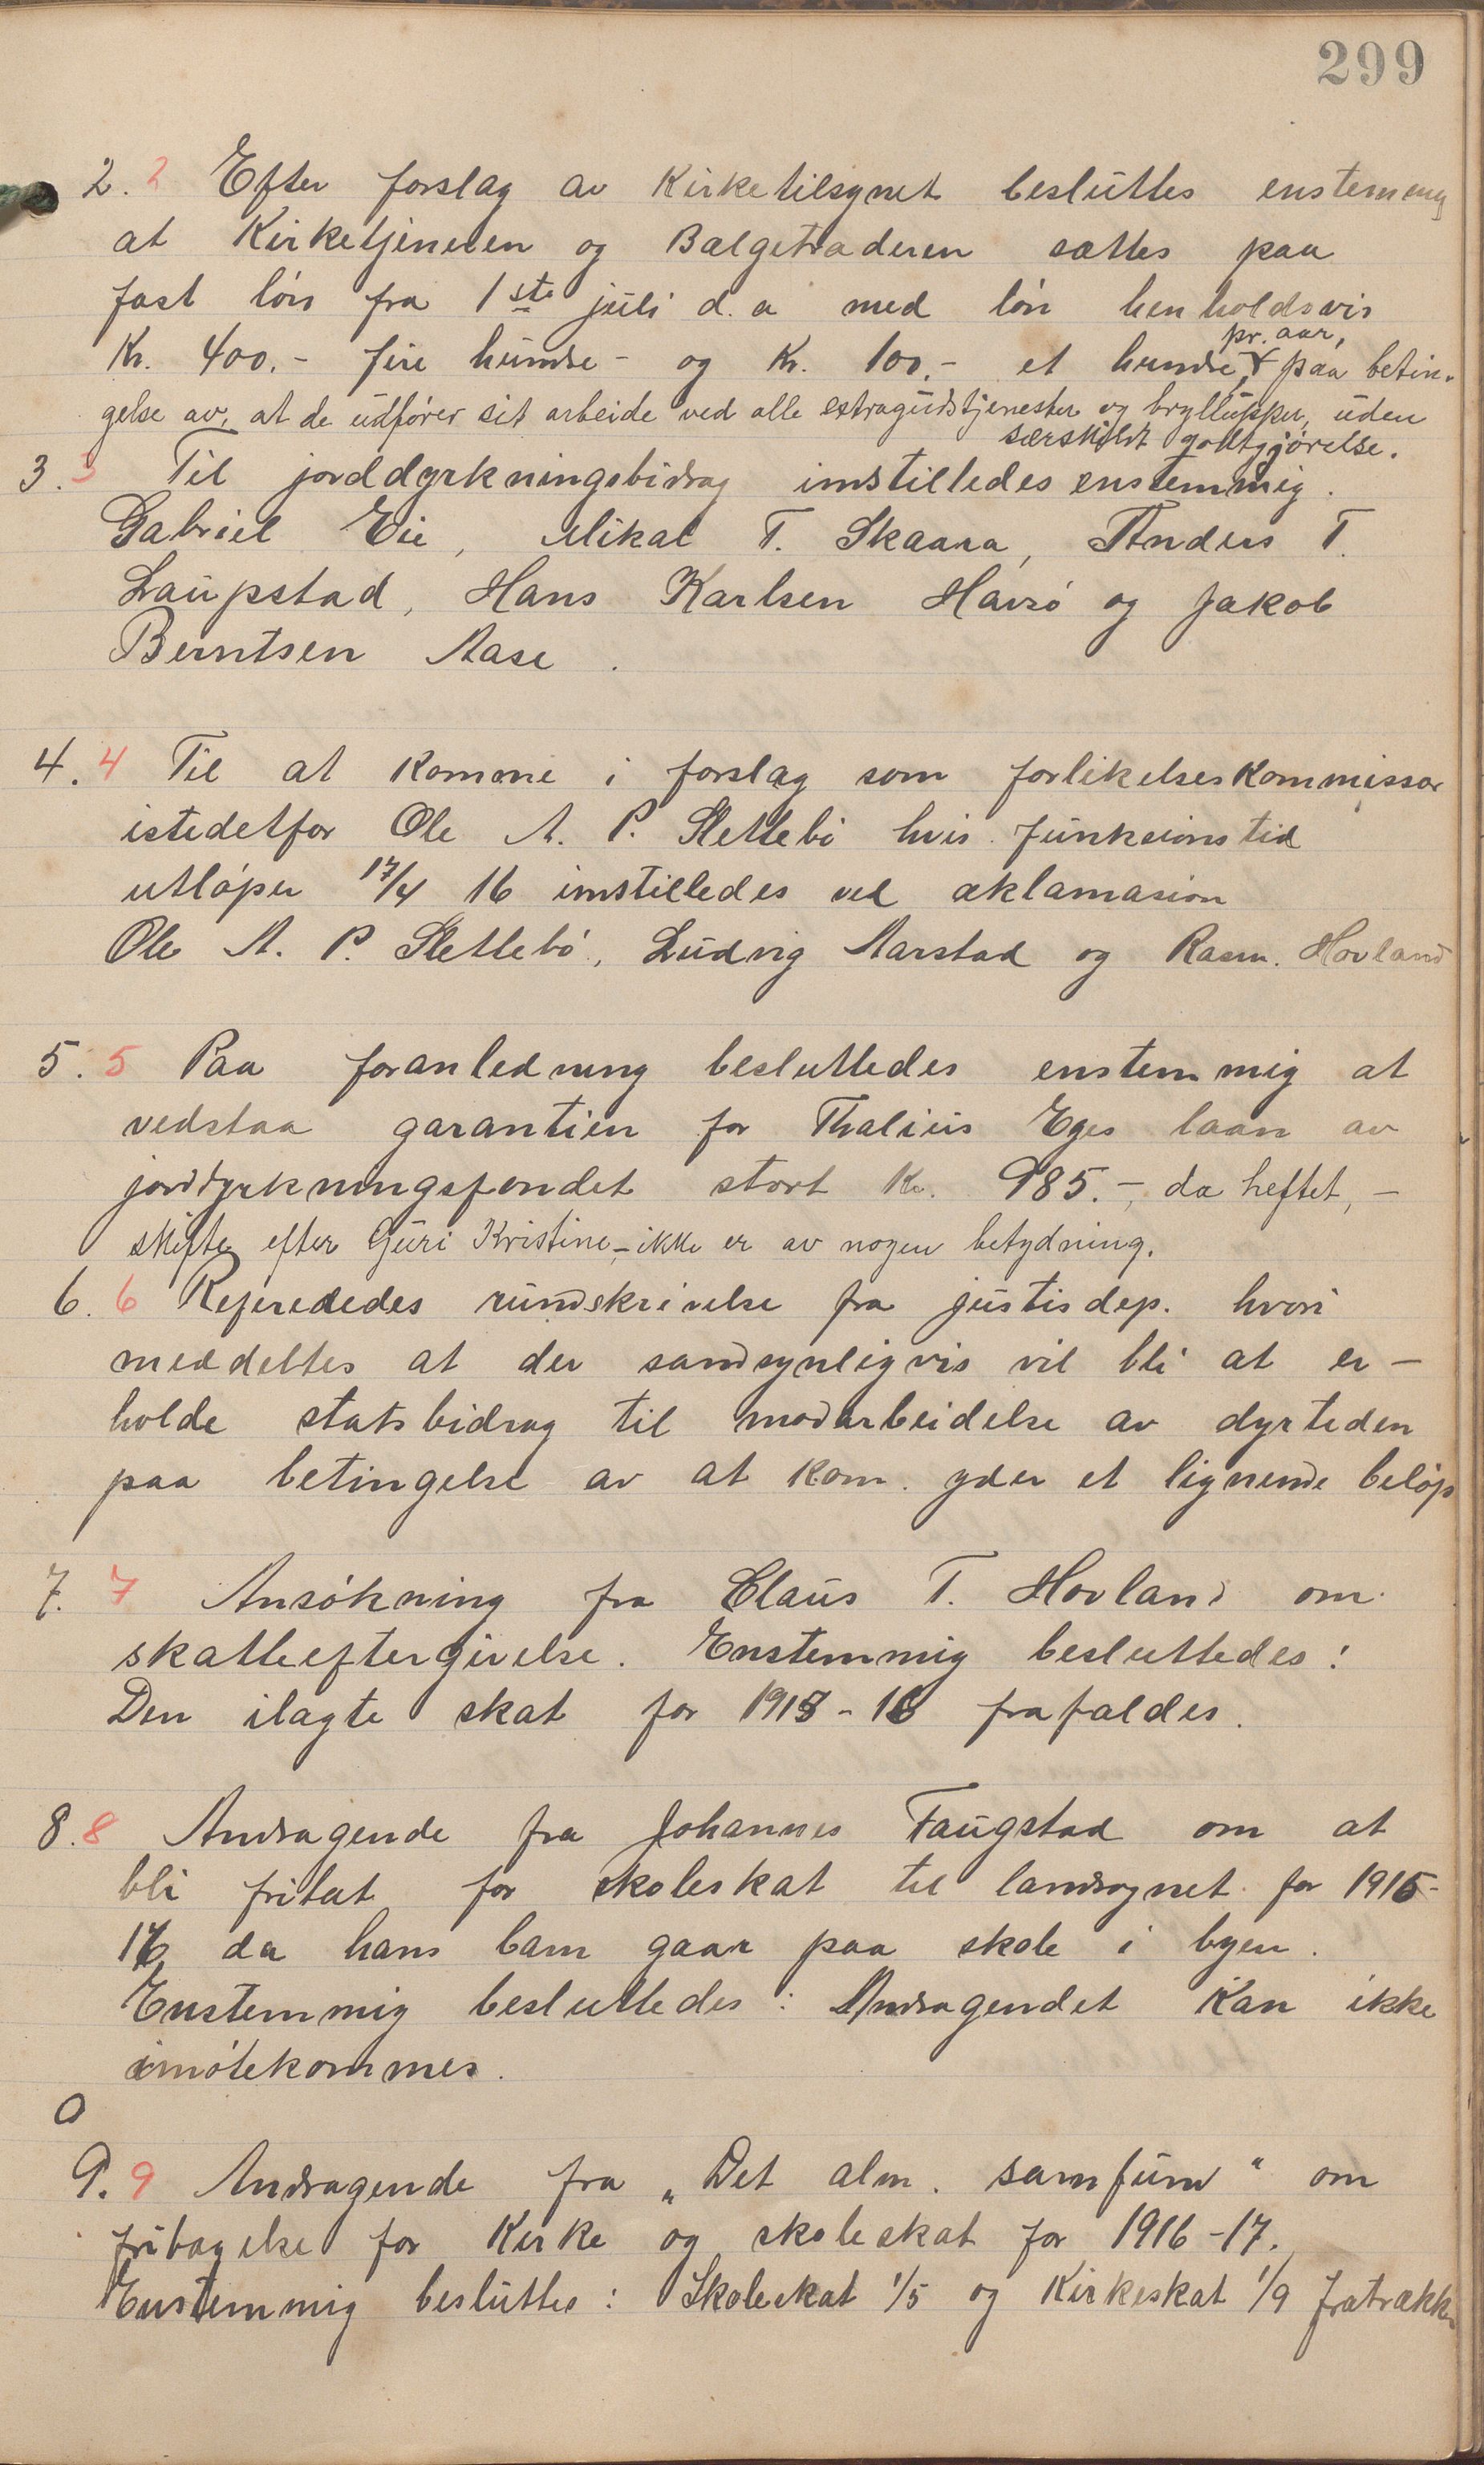 299
2. 2 Efter forslag av Kirketilsynet besluttes enstemmig
at Kirketjeneren og Bælgetræderen sættes paa
fast løn fra 1ste juli d.a med løn henholdsvis
pr. aar,
Kr. 400.- fire hundre - og Kr. 100.- et hundre paa betin-
gelse av, at de udfører sit arbeide ved alle extragudstjenester og bryllupper, uden
særskildt godtgjørelse.
3. 3 Til jorddyrkningsbidrag instilledes enstemmig.
Gabriel Eie, Mikal T. Skaara, Anders T.
Laupstad, Hans Karlsen Havsø og Jakob
Berntsen Aase.
4. 4 Til at komme i forslag som forlikelseskommissær
istedetfor Ole A. P. Slettebø hvis funksionstid
utløper 17/4 16 instilledes ved aklamasion
Ole A. P. Slettebø, Ludvig Aarstad og Rasm. Hovland
5. 5 Paa foranledning besluttedes enstemmig at
vedstaa garantien for Thalius Eges laan av
jorddyrkningsfondet stort kr. 985.-, da heftet, -
skifte efter Guri Kristine - ikke er av nogen betydning.
6. 6 Refereredes rundskrivelse fra justisdep. hvori
meddeltes at der sandsynligvis vil bli at er-
holde statsbidrag til modarbeidelse av dyrtiden
paa betingelse av at kom. yder et lignende beløp
7. 7 Ansøkning fra Claus T. Hovland om
skatteeftergivelse. Enstemmig besluttedes:
Den ilagte skat for 1915-16 frafaldes.
8. 8 Andragende fra Johannes Faugstad om at
bli fritat for skoleskat til landsognet for 1916-
17 da hans barn gaar paa skole i byen.
Enstemmig besluttedes: Andragendet kan ikke
imøtekommes.
9. 9 Andragende fra „Det alm. samfund" om
fritagelse for Kirke og skoleskat for 1916-17.
Enstemmig besluttes: Skoleskat 1/5 og Kirkeskat 1/9 fratrækkes